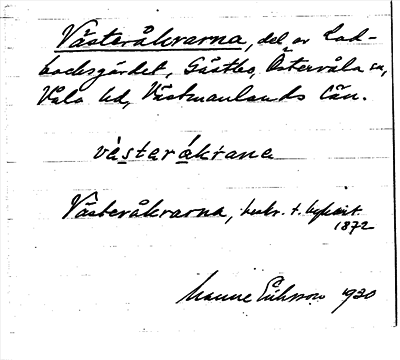 Västeråkrarna, del av Lad-
backsgärdet, Gästbo, Östervåla sn,
Våla hd, Västmanlands län.
västəråkrana
Västeråkrarna, beskr. t. kspkart.
1872
Manne Eriksson 1930